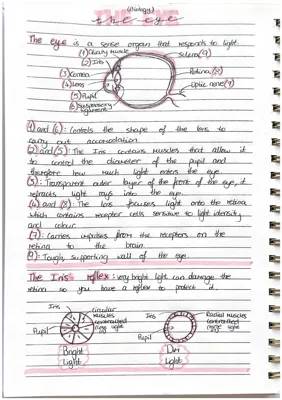 (Biology)
the eye
The eye is a sense organ that responds to light.
(1) Ciliary muscle
Sclera (9)
(2) Iris
(3) Cornea
Retina (8)
(4) Lens
Optic nerve (7)
(5) Pupil
(6) Suspensory ligament
(1) and (6): Controls the shape of the lens to
carry out accomodation
(2) and (5): The Iris contains muscles that allow it
to control the diameter of the pupil and
therefore how much light enters the eye.
(3): Transparent outer layer of the front of the eye, it
refracts light rays into the eye.
(4) and (8): The lens focuses light onto the retina
which contains receptor cells sensitive to light intensity
and colour
(7): Carries impulses from the receptors on the
retina to the brain.
(9): Tough, supporting wall of the eye.
The Iris reflex: very bright light can damage the
retina so you have a reflex to protect it.
Iris
circular
muscles
contracted
Pupil
Bright
Light
Iris
Radial muscles
contracted
Pupil
Dim
Light